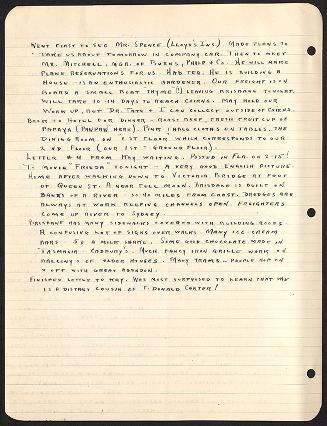 Went first to see Mr. Spence (Lloyds Ins) Made plans to
take us about tomorrow in company car. Then to meet
Mr. Mitchell, Mgr. of Burns, Philp + Co. He will make
plane reservations for us. Had tea. He is building a
house - is an enthusiastic gardener. Our freight is on
board a small boat Thyme (!) leaving Brisbane tonight,
will take 10-14 days to reach Cairns. May hold our
work up, but Dr. Tate + I can collect outside of Cairns.
Back to hotel for dinner - roast beef, fresh fruit cup of
papaya (pawpaw here). Pink table cloths on tables, the
dining room on 1st floor which corresponds to our
2nd floor (our 1st = ground floor).
Letter #4 from May waiting. Posted in Fla. on 2-15!
To movie "Frieda" tonight - a very good English picture.
Home after walking down to Victoria Bridge at foot
of Queen St. A near full moon. Brisbane is built on
banks of a river miles from coast. Dredges are
always at work keeping channels open. Freighters
come up river to Sydney.
Brisbane has many sidewalks covered with building roofs
A confusing lot of signs over walks. Many ice-cream
bars - 5d a milk shake. Some good chocolate made in
Tasmania Cadbury's. Much fancy iron grille work on
balconys of older houses. Many trams - people hop on
+ off with great abandon.
Finished letter to May. Was most surprised to learn that
is a distant cousin of T. Donald Carter!